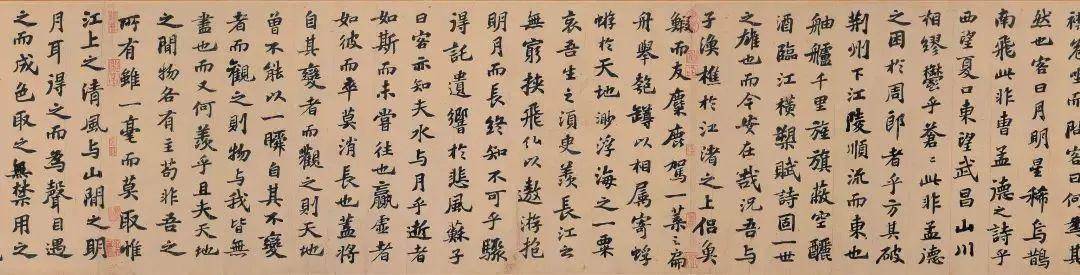 危坐而問客曰何為其
然也客曰月明星稀烏鵲
南飛此非曹孟德之詩乎
西望夏口東望武昌山川
相繆鬱乎蒼〻此非孟德
之困於周郎者乎方其破
荊州下江陵順流而東也
舳艫千里旌旗蔽空釃
酒臨江橫槊賦詩固一世
之雄也而今安在哉況吾与
子漁樵於江渚之上侶魚
鰕而友麋鹿駕一葉之扁
舟舉匏罇以相属寄蜉
蝣於天地渺浮海之一粟
哀吾生之須臾羨長江之
無窮挾飛仙以遨游抱
明月而長終知不可乎驟
得託遺響於悲風蘇子
曰客亦知夫水与月乎逝者
如斯而未嘗往也贏虛者
如彼而卒莫消長也蓋將
自其變者而觀之則天地
曾不能以一瞬自其不變
者而觀之則物与我皆無
盡也而又何羨乎且夫天地
之間物各有主苟非吾之
所有雖一毫而莫取惟
江上之清風与山間之明
月耳得之而為聲目遇
之而成色取之無禁用之